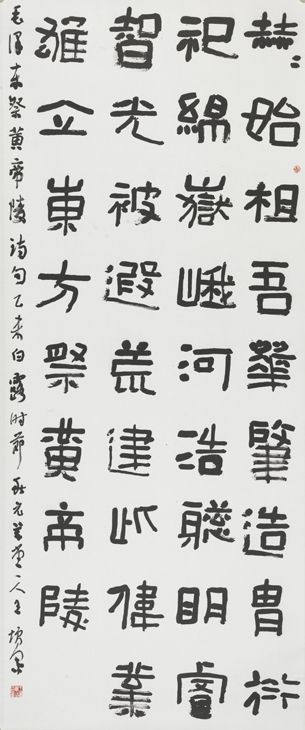 赫〻始祖吾華肇造胄衍
祀綿嶽峨河浩聰明睿
智光被遐荒建此偉業
雄立東方祭黄帝陵
毛澤東祭黄帝陵詩句乙未白露时節